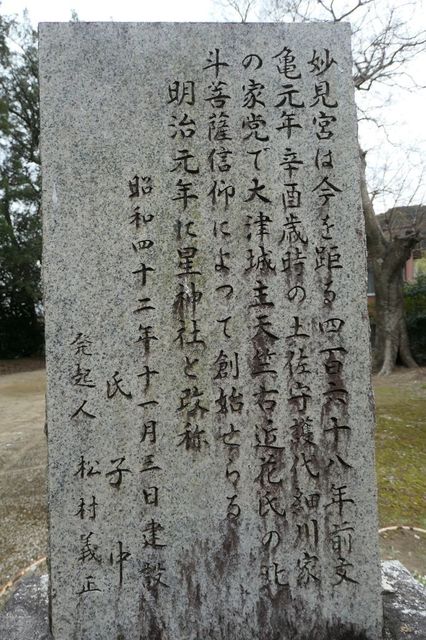 妙見宮は今を距る四百六十八年前文
亀元年辛酉歳時の土佐守護代細川家
の家党で大津城主天竺右近花氏の北
斗菩薩信仰によつて創始せらる
明治元年に星神社と改称
昭和四十二年十一月三日建設
氏子中
発起人 松村義正